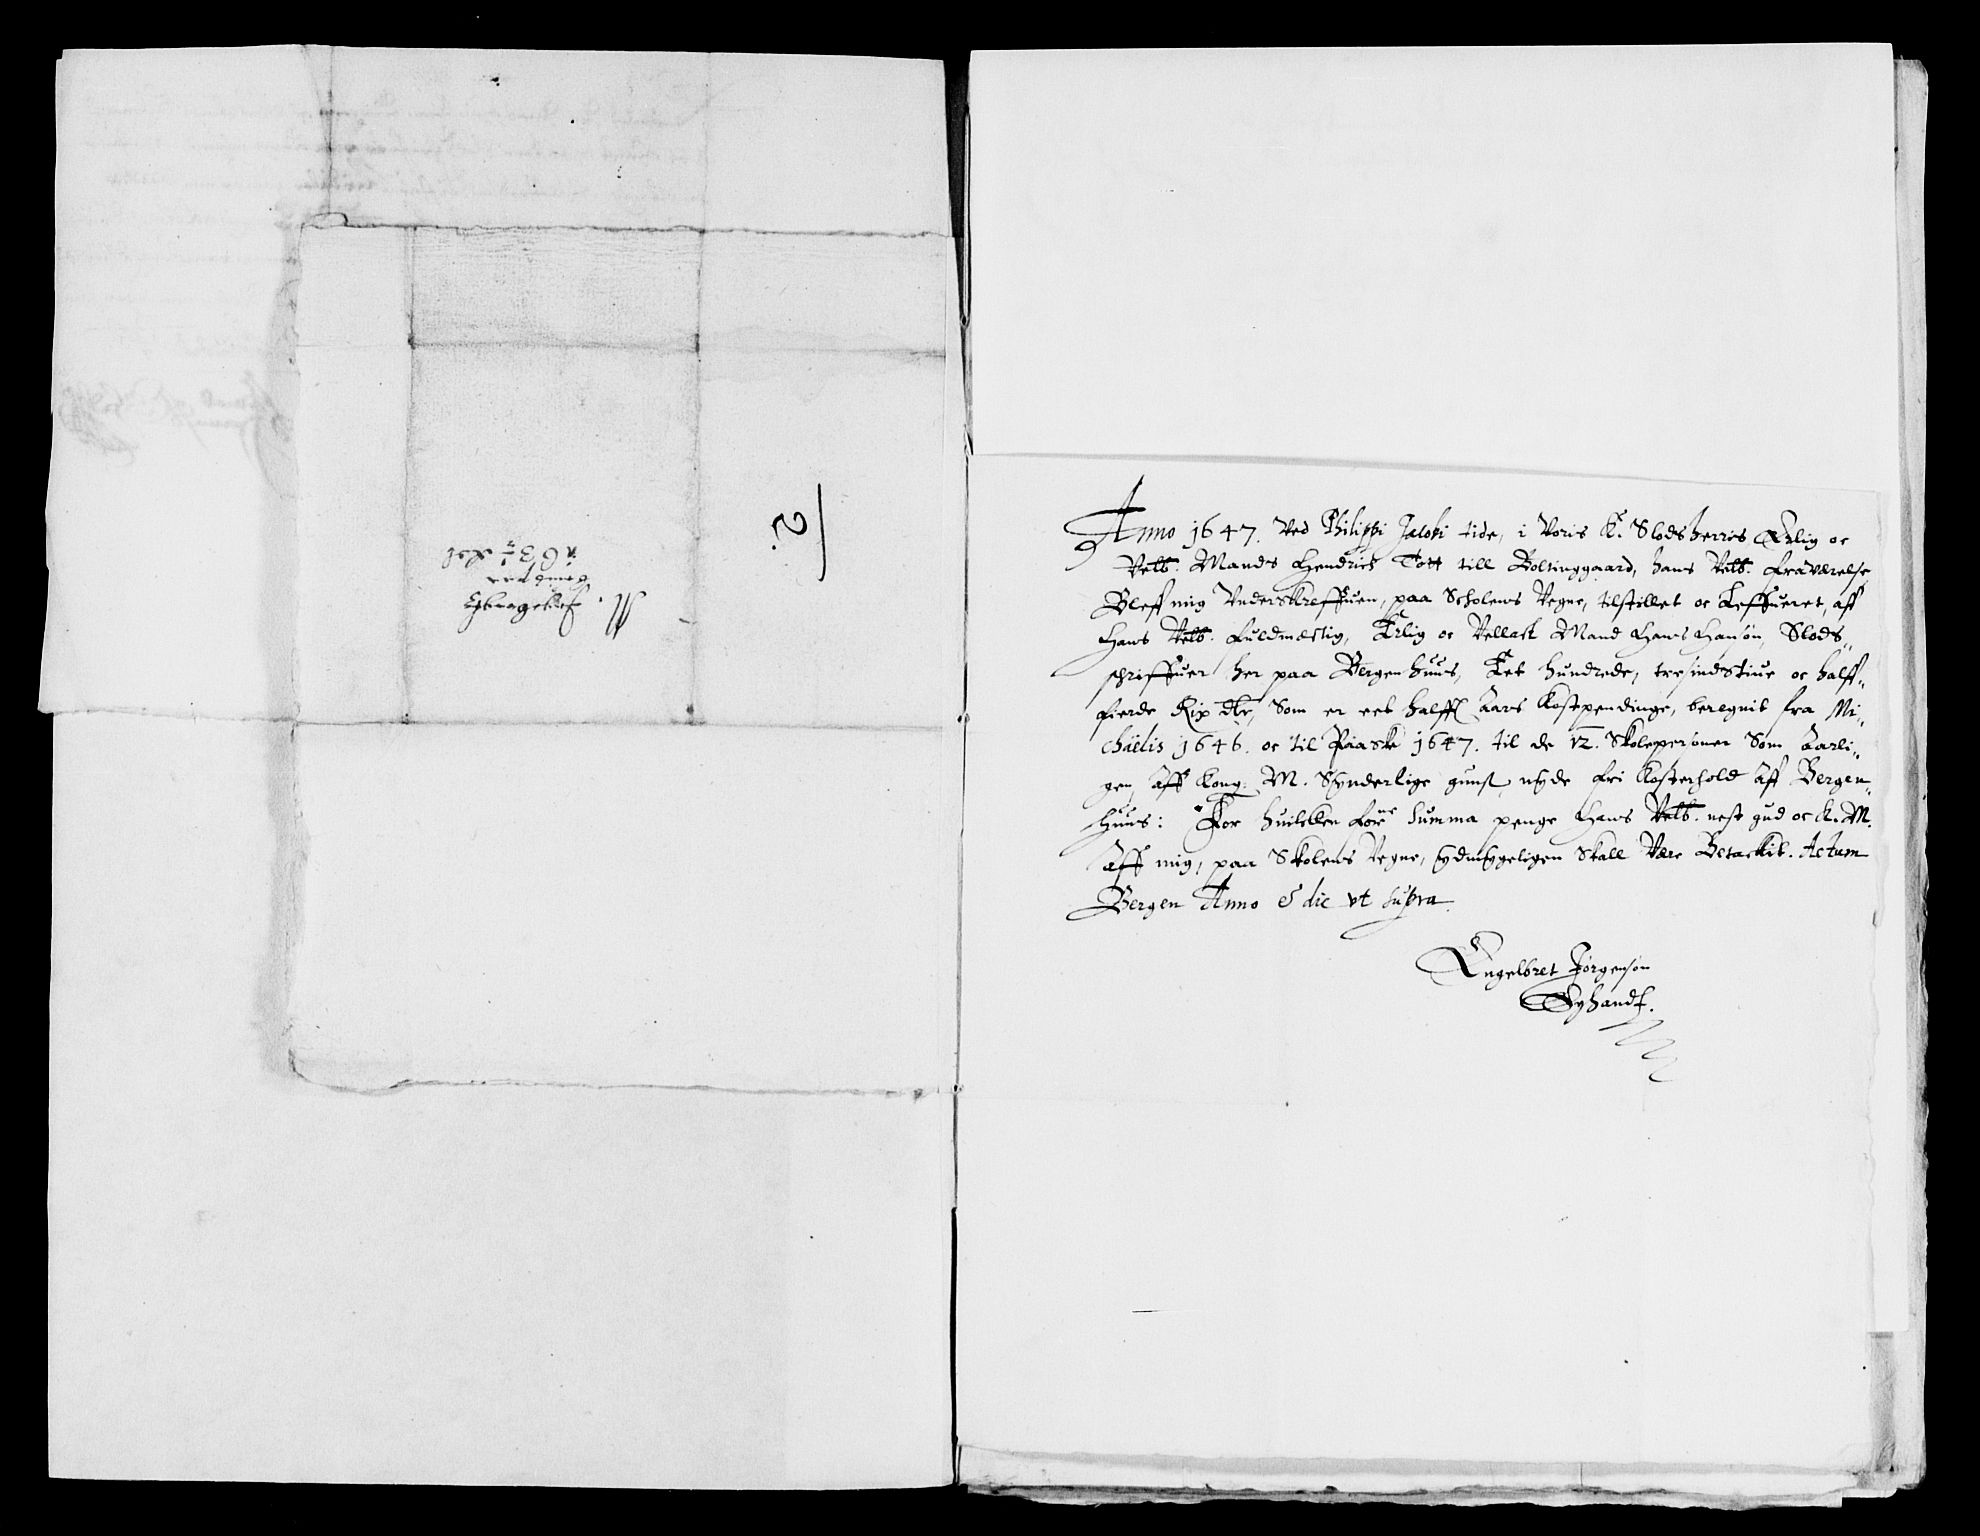 2.
M.
163½ dlr
Anno 1647. Ved Philippi Jacobi tide, i Voris K. Slodsherris Ærlig oc
Velb. Mands Hendrich Tott till Boltinggaard, hans Velb. fraværelse
Bleff mig Underskreffuen, paa Scholens Vegne, tilstillet oc Leffueret, aff
Hans Velb. fuldmectig, Erlig oc Vellact Mand Hans Hansøn, Slods„
schriffuer her paa Bergenhuus, Eet hundrede, tresindstiue oc halff„
fierde Rix dlr, Som er eet halfft Aars Kostpendinge, beregnit fra Mi„
chaelis 1646. oc til Paaske 1647. til de 12. Skolepersoner Som Aarli„
gen, Aff Kong. M. Synderlige gunst, nyde fri Kosterhold Aff Bergen„
huus: For huilcken forne Summa penge Hans Velb. nest gud oc K. M.
Aff mig, paa Skolens Vegne, ydmygeligen Skall Være Betackit. Actum
Bergen Anno & die ut supra.
Engelbret Jørgensøn
Eyhandt.